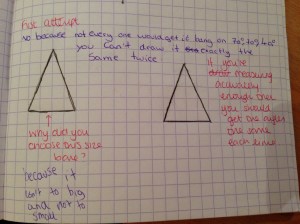 no because not every one would get it bang on 70° 70° 40°
you can't draw it exactly the
same twice
why did you
choose this size
base?
because it
isn't to big
and not to
small
if you're
measuring
accuratly
enough then
you would
get the
one same
each time